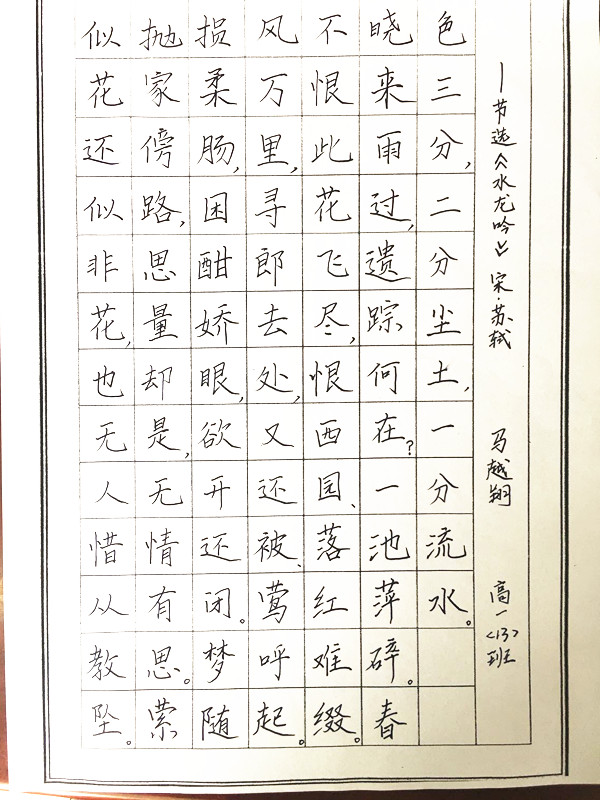 似花还似非花,也无人惜从教坠。
抛家傍路,思量却是,无情有思。萦
损柔肠,困酣娇眼,欲开还闭。梦随
风万里,寻郎去处,又还被、莺呼起。
不恨此花飞尽,恨西园、落红难缀。
晓来雨过,遗踪何在?一池萍碎。春
色三分,二分尘土,一分流水。
—节选《水龙吟》宋·苏轼 马越翔 高一<13>班